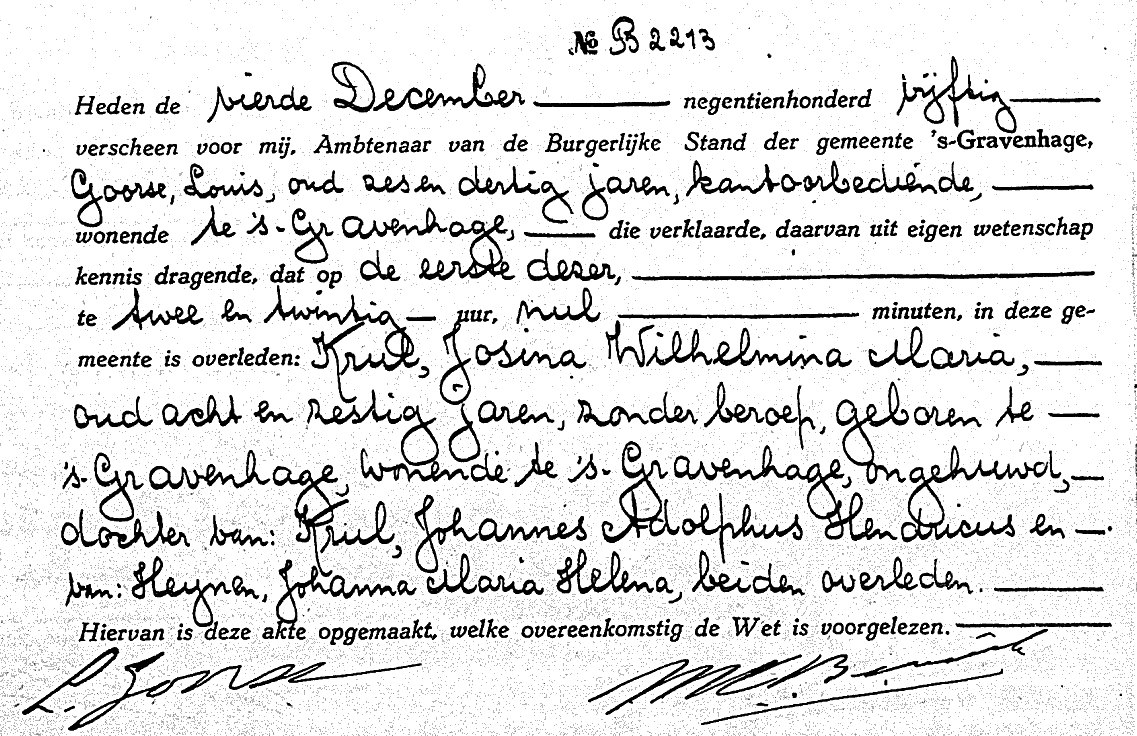 No B 2213
Heden de vierde December negentienhonderd vijftig
verscheen voor mij, Ambtenaar van de Burgerlijke Stand der gemeente 's-Gravenhage,
Goorse, Louis, oud zes en dertig jaren, kantoorbediende,
wonende te 's-Gravenhage, die verklaarde, daarvan uit eigen wetenschap
kennis dragende, dat op de eerste dezer,
te twee en twintig uur, nul minuten, in deze ge-
meente is overleden: Krul, Josina Wilhelmina Maria,
oud acht en zestig jaren, zonder beroep, geboren te
's-Gravenhage, wonende te 's-Gravenhage, ongehuwd,
dochter van: Krul, Johannes Adolphus Hendricus en
van: Heynen, Johanna Maria Helena, beiden overleden.
Hiervan is deze akte opgemaakt, welke overeenkomstig de Wet is voorgelezen.
L. Goorse